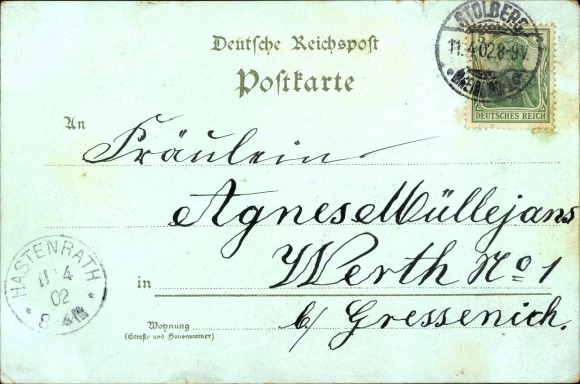 Deutsche Reichspost
Postkarte
STOLBERG
11.4.02.8-9V.
DEUTSCHES REICH
An
Fräulein
Agnes Müllejans
Werth No 1
in
b/ Gressenich.
HASTENRATH
11 4
02
8-
Wohnung
(Straße und Hausnummer)